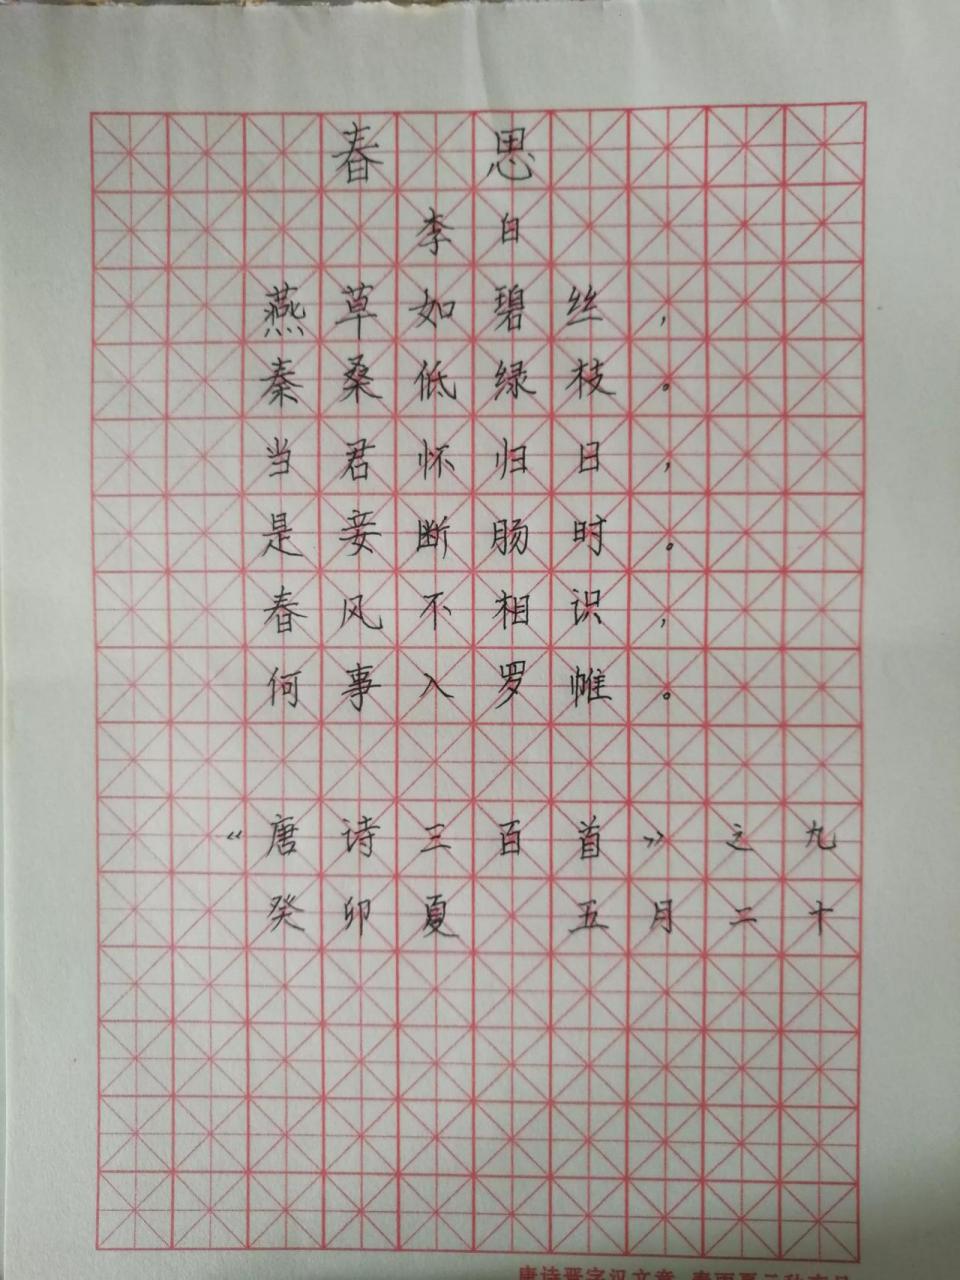 春思
李白
燕草如碧丝，
秦桑低绿枝。
当君怀归日，
是妾断肠时。
春风不相识，
何事入罗帷。
“唐诗三百首”之九
癸卯夏 五月二十
唐诗晋字汉文章